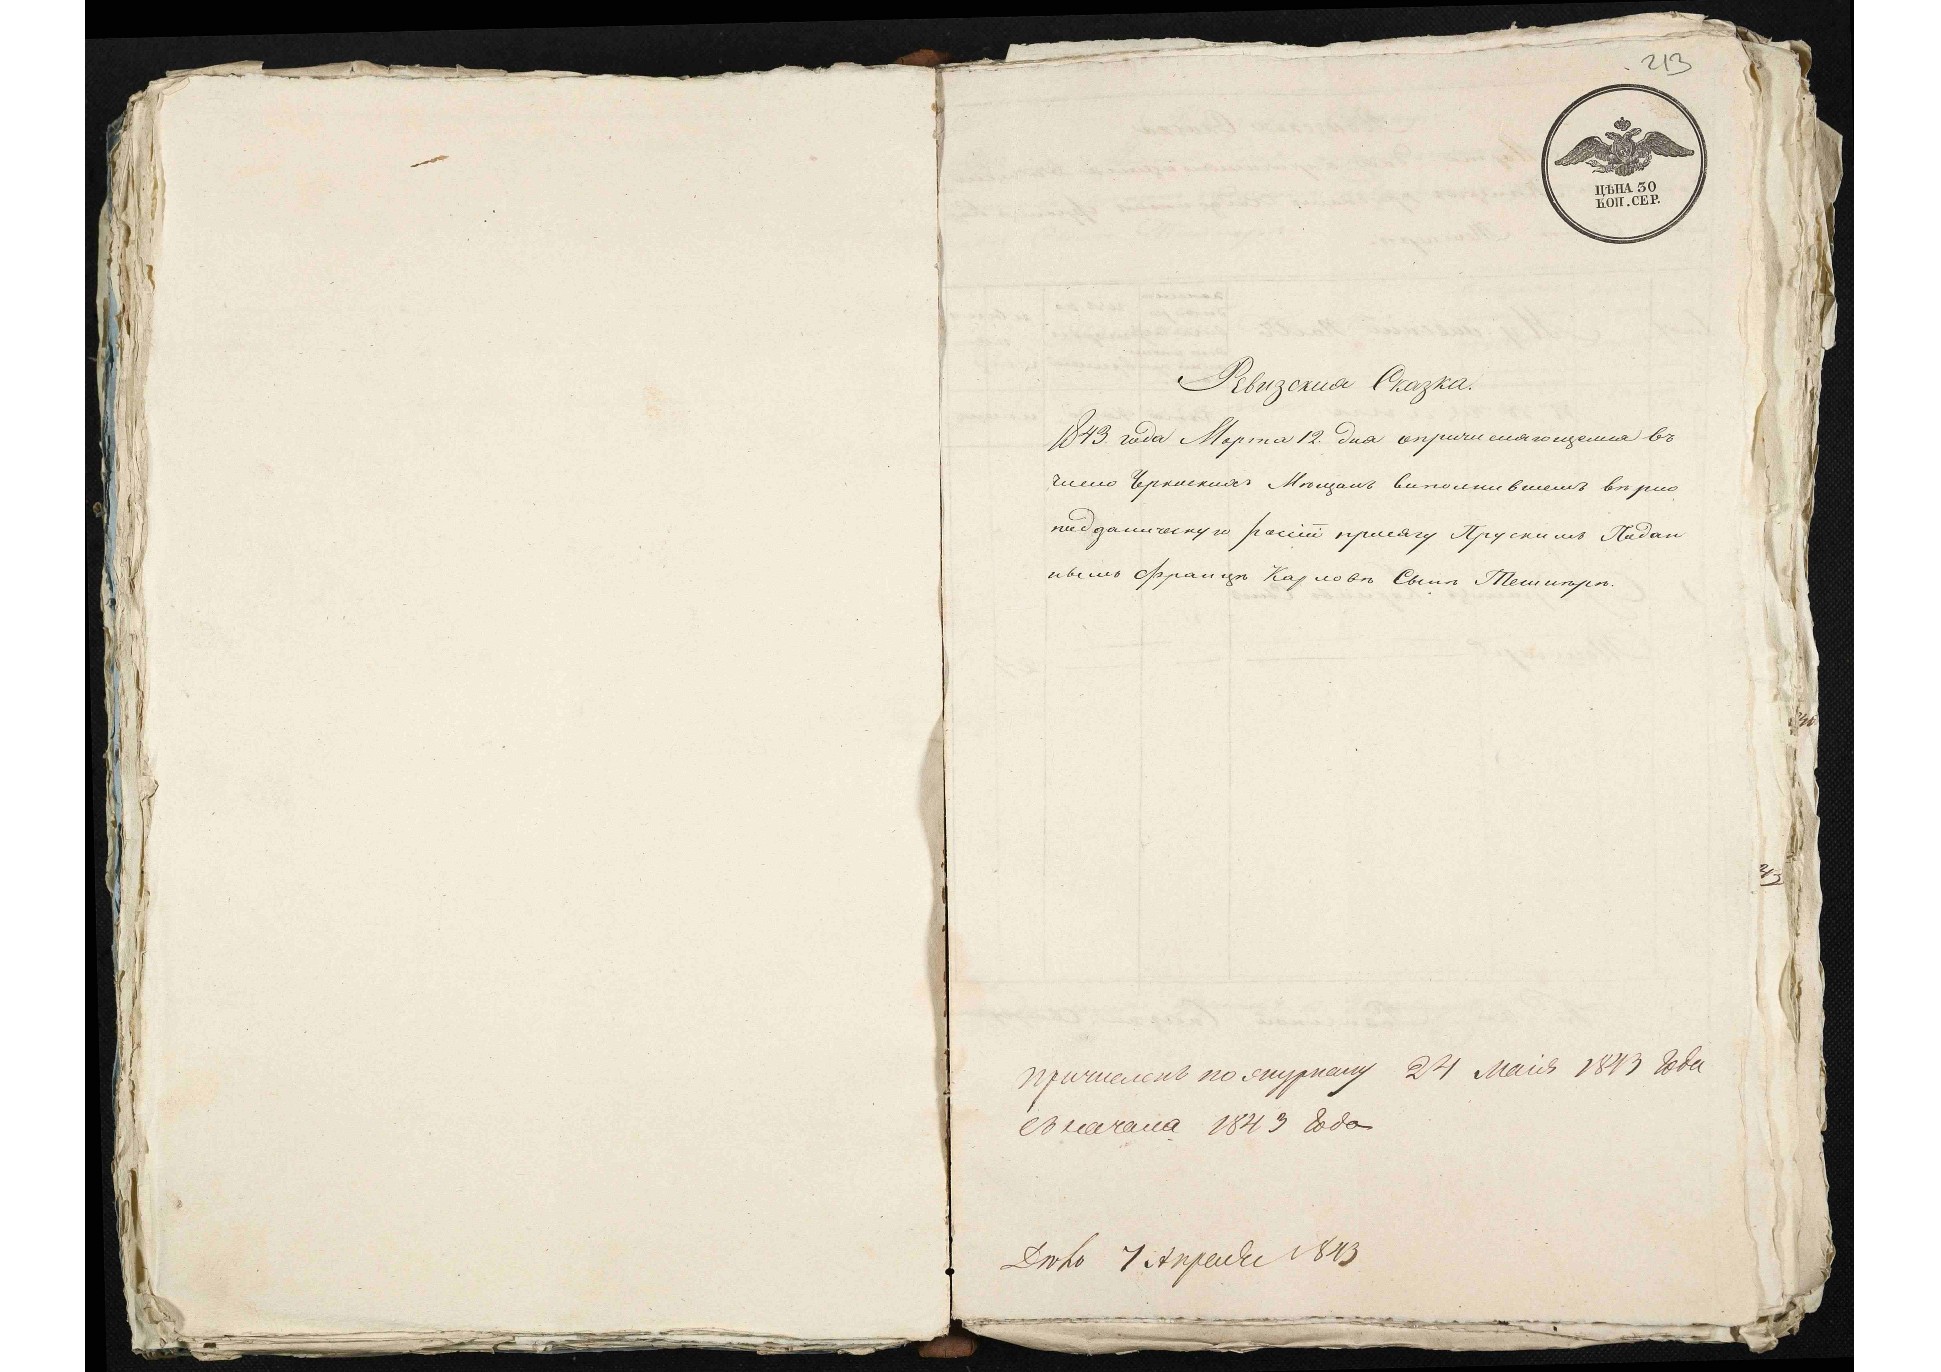 213
ЦѢНА 30
КОП. СЕР.
Ревизская Сказка.
1843 года Марта 12. дня опричисляющемся въ
число Черкаскихъ Мѣщанъ виполнившемъ вѣрно
подданическую росіи присягу Прускимъ Подан
нымъ Францѣ Карловѣ Сынѣ
причисленъ по журналу 24 маія 1843 года
съ начала 1843 года
Дѣло 7 Апреля 1843
43